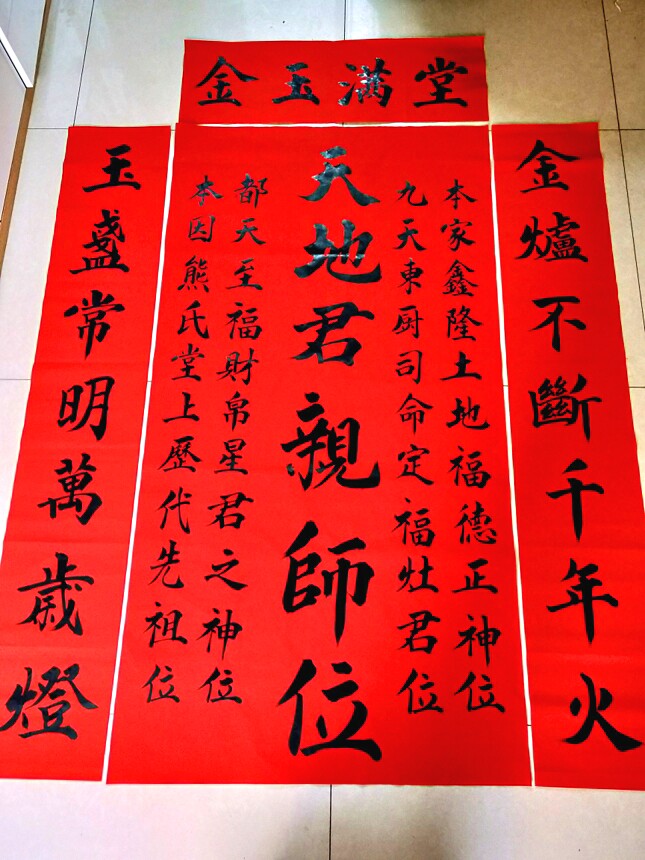 金玉满堂
金爐不斷千年火
本家鑫隆土地福德正神位
九天東厨司命定福灶君位
天地君親師位
都天至福財帛星君之神位
本因熊氏堂上歷代先祖位
玉盏常明萬歲燈